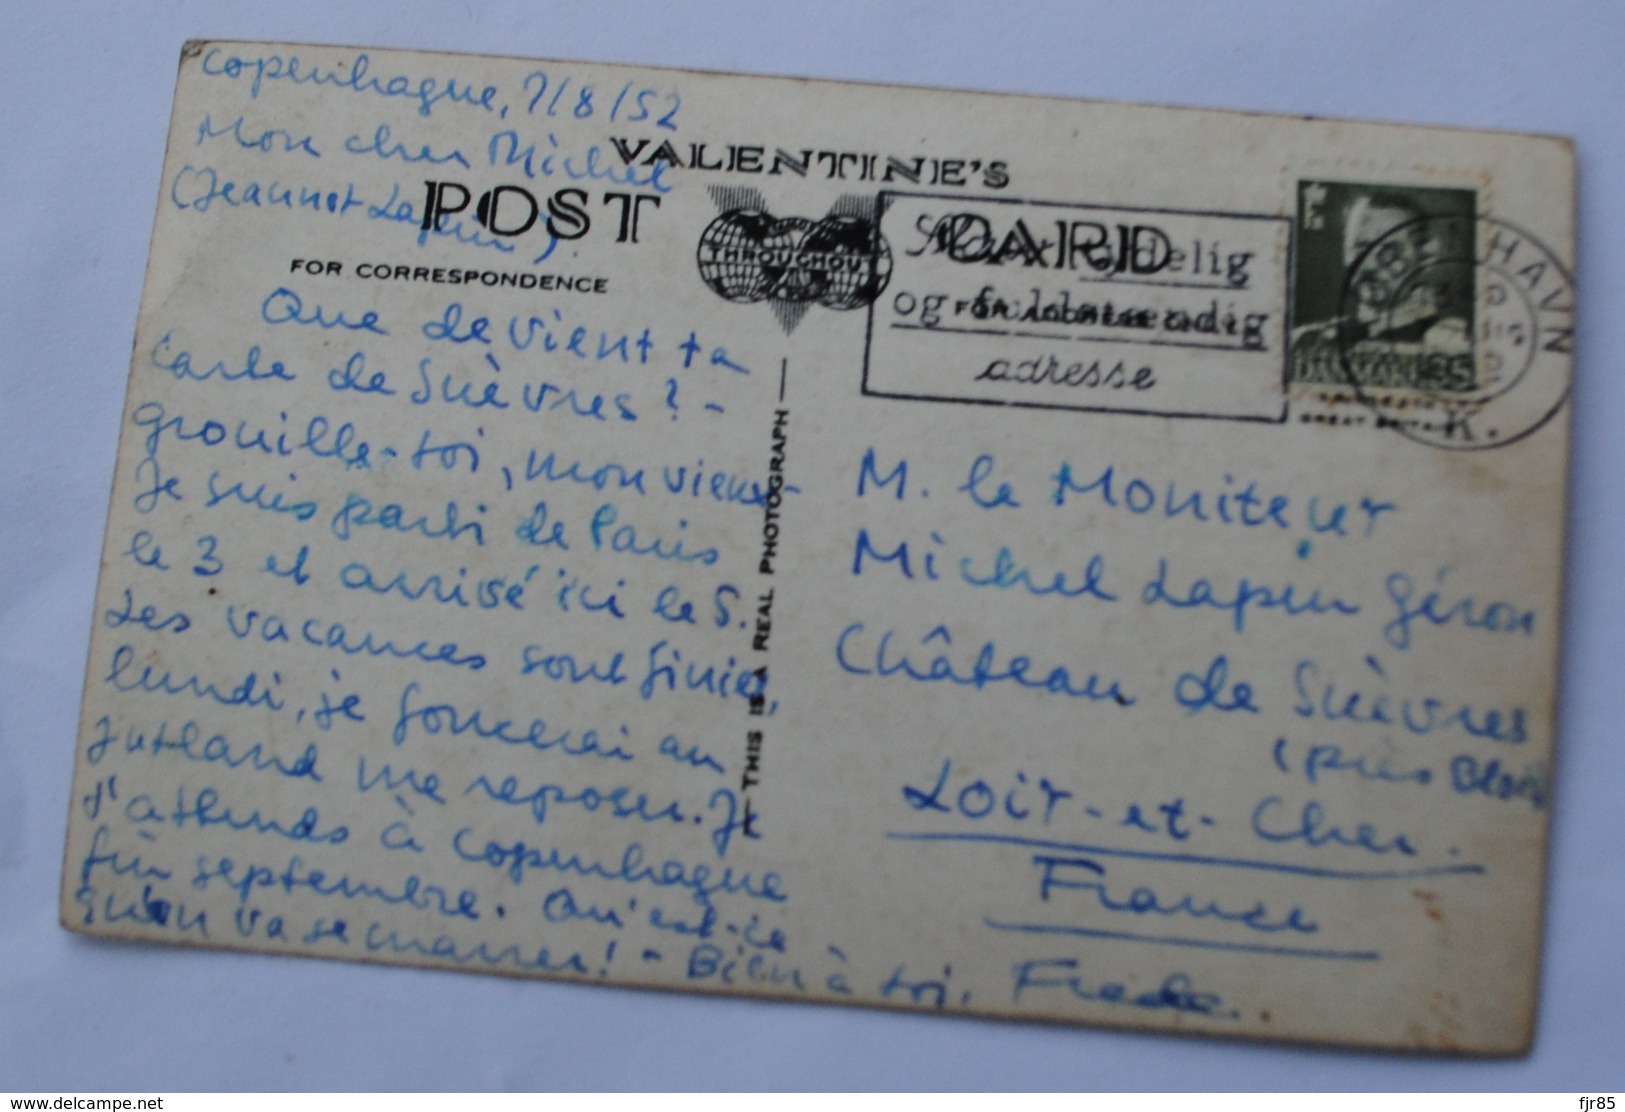 Copenhague, 7/8/52
Mon cher Michel
(Jeannot Lapin)
VALENTINE'S
POST CARD
FOR CORRESPONDENCE
THROUGHOUT
FOR ADDRESS ONLY
Que devient ta
carte de Suèvres ? -
grouille-toi, mon vieux -
Je suis parti de Paris
le 3 et arrivé ici le 5.
Les vacances sont finies,
lundi, je foncerai au
Jutland me reposer. Je
t'attends à Copenhague
fin septembre. Qu'est-ce
qu'on va se marrer ! - Bien à toi,
THIS IS A REAL PHOTOGRAPH
tydelig
og fuldstændig
adresse
KØBENHAVN
K.
DANMARK 35
GREAT BRITAIN
M. le Moniteur
Michel Lapin Géron
Château de Suèvres
(près Blois
Loir-et-Cher.
France
www.delcampe.net
fjr85